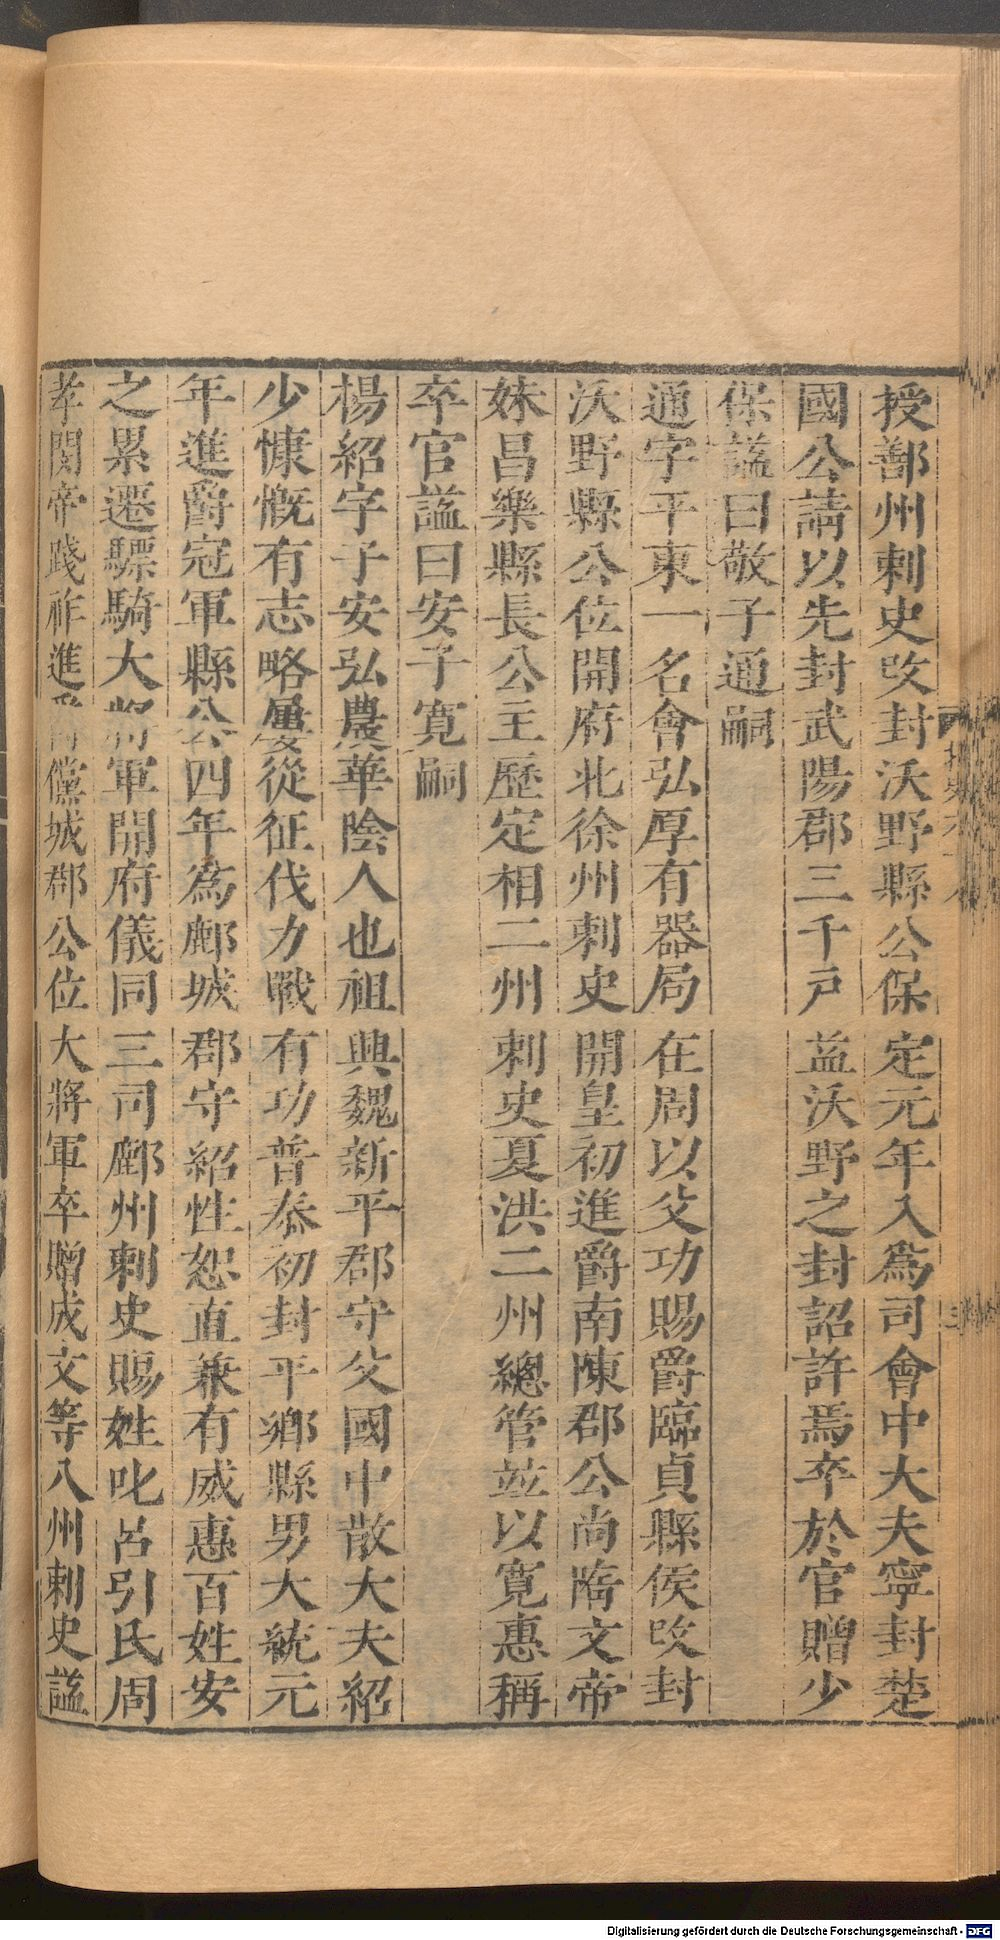 授鄯州刺史改封沃野縣公保定元年入爲司會中大夫寧封楚
國公請以先封武陽郡三千戶益沃野之封詔許焉卒於官贈少
保謚曰敬子通嗣
通字平東一名會弘厚有器局在周以父功賜爵臨貞縣侯改封
沃野縣公位開府北徐州刺史開皇初進爵南陳郡公尚隋文帝
妹昌樂縣長公主歷定相二州刺史夏洪二州總管並以寬惠稱
卒官謚曰安子寬嗣
楊紹字子安弘農華陰人也祖興魏新平郡守父國中散大夫紹
少慷慨有志略屢從征伐力戰有功普泰初封平鄉縣男大統元
年進爵冠軍縣公四年爲鄜城郡守紹性恕直兼有威惠百姓安
之累遷驃騎大將軍開府儀同三司鄜州刺史賜姓叱呂引氏周
孝閔帝踐祚進儻城郡公位大將軍卒贈成文等八州刺史謚
Digitalisierung gefördert durch die Deutsche Forschungsgemeinschaft - DFG